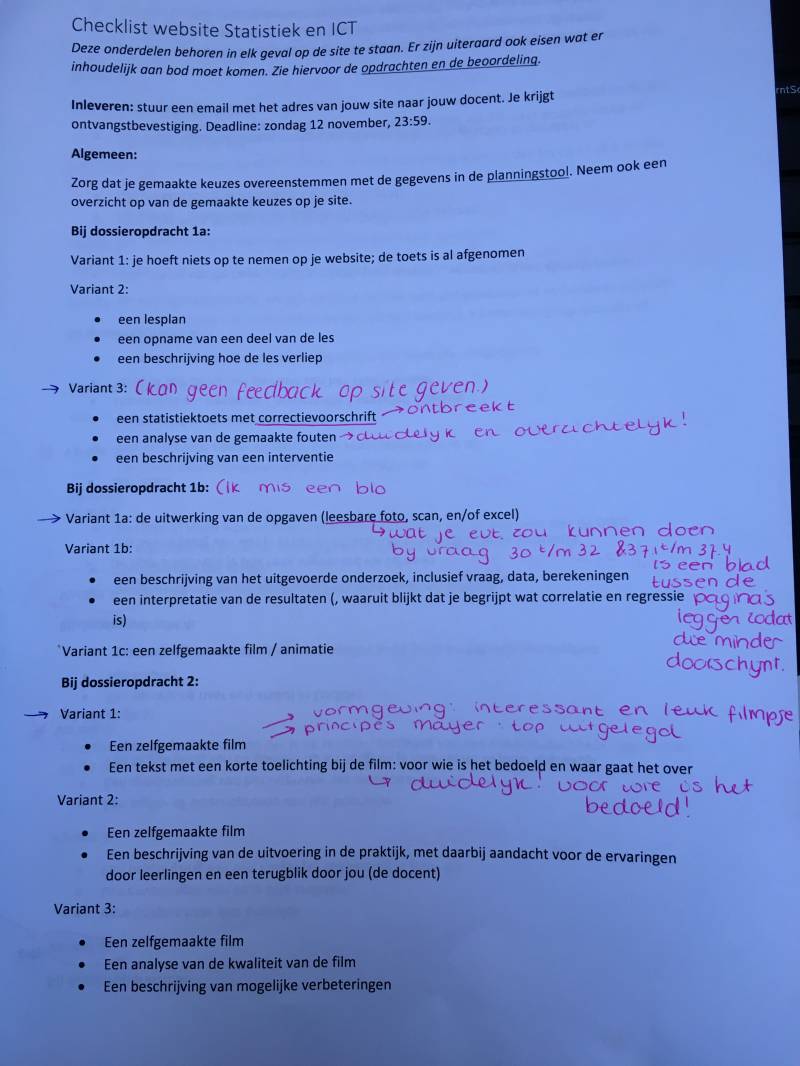 Checklist website Statistiek en ICT
Deze onderdelen behoren in elk geval op de site te staan. Er zijn uiteraard ook eisen wat er
inhoudelijk aan bod moet komen. Zie hiervoor de opdrachten en de beoordeling.
Inleveren: stuur een email met het adres van jouw site naar jouw docent. Je krijgt
ontvangstbevestiging. Deadline: zondag 12 november, 23:59.
Algemeen:
Zorg dat je gemaakte keuzes overeenstemmen met de gegevens in de planningstool. Neem ook een
overzicht op van de gemaakte keuzes op je site.
Bij dossieropdracht 1a:
Variant 1: je hoeft niets op te nemen op je website; de toets is al afgenomen
Variant 2:
• een lesplan
• een opname van een deel van de les
• een beschrijving hoe de les verliep
→ Variant 3: (kan geen feedback op site geven.)
• een statistiektoets met correctievoorschrift → ontbreekt
• een analyse van de gemaakte fouten → duidelyk en overzichtelyk!
• een beschrijving van een interventie
Bij dossieropdracht 1b: (Ik mis een blo
→ Variant 1a: de uitwerking van de opgaven (leesbare foto, scan, en/of excel)
↳ wat je evt. zou kunnen doen
Variant 1b: by vraag 30 t/m 32 & 37.1 t/m 37.4
is een blad
• een beschrijving van het uitgevoerde onderzoek, inclusief vraag, data, berekeningen tussen de
• een interpretatie van de resultaten (, waaruit blijkt dat je begrijpt wat correlatie en regressie pagina's
is) leggen zodat
die minder
Variant 1c: een zelfgemaakte film / animatie
doorschynt.
Bij dossieropdracht 2:
→ Variant 1: → vormgeving: interessant en leuk filmpje
→ principes mayer: top uitgelegd
• Een zelfgemaakte film
• Een tekst met een korte toelichting bij de film: voor wie is het bedoeld en waar gaat het over
↳ duidelyk! voor wie is het
bedoeld!
Variant 2:
• Een zelfgemaakte film
• Een beschrijving van de uitvoering in de praktijk, met daarbij aandacht voor de ervaringen
door leerlingen en een terugblik door jou (de docent)
Variant 3:
• Een zelfgemaakte film
• Een analyse van de kwaliteit van de film
• Een beschrijving van mogelijke verbeteringen